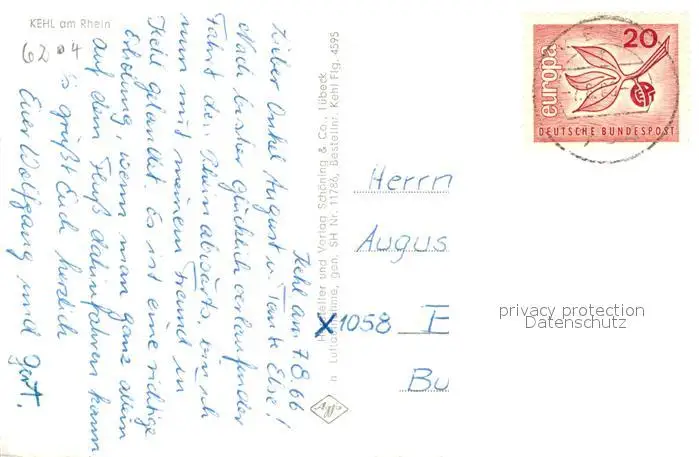 KEHL am Rhein
6204
Kehl am 7.8.66
Lieber Onkel August u. Tante Else!
Nach bisher glücklich verlaufender
Fahrt den Rhein abwärts, bin ich
nun mit meinem Freund in
Kehl gelandet. Es ist eine richtige
Erholung, wenn man ganz allein
auf dem Fluß dahinfahren kann
Es grüßt Euch herzlich
Euer Wolfgang und Gert.
Hersteller und Verlag Schöning & Co., Lübeck
Luftaufnahme, gen. SH Nr. 11786, Bestellnr. Kehl Flg. 4595
europa
20
DEUTSCHE BUNDESPOST
Herrn
Augus
X1058 E
Bu
privacy protection
Datenschutz